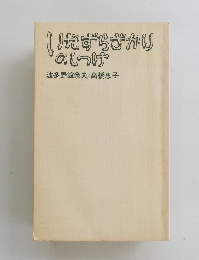 いたずらざかり
のしつけ
波多野誼余夫・高橋恵子